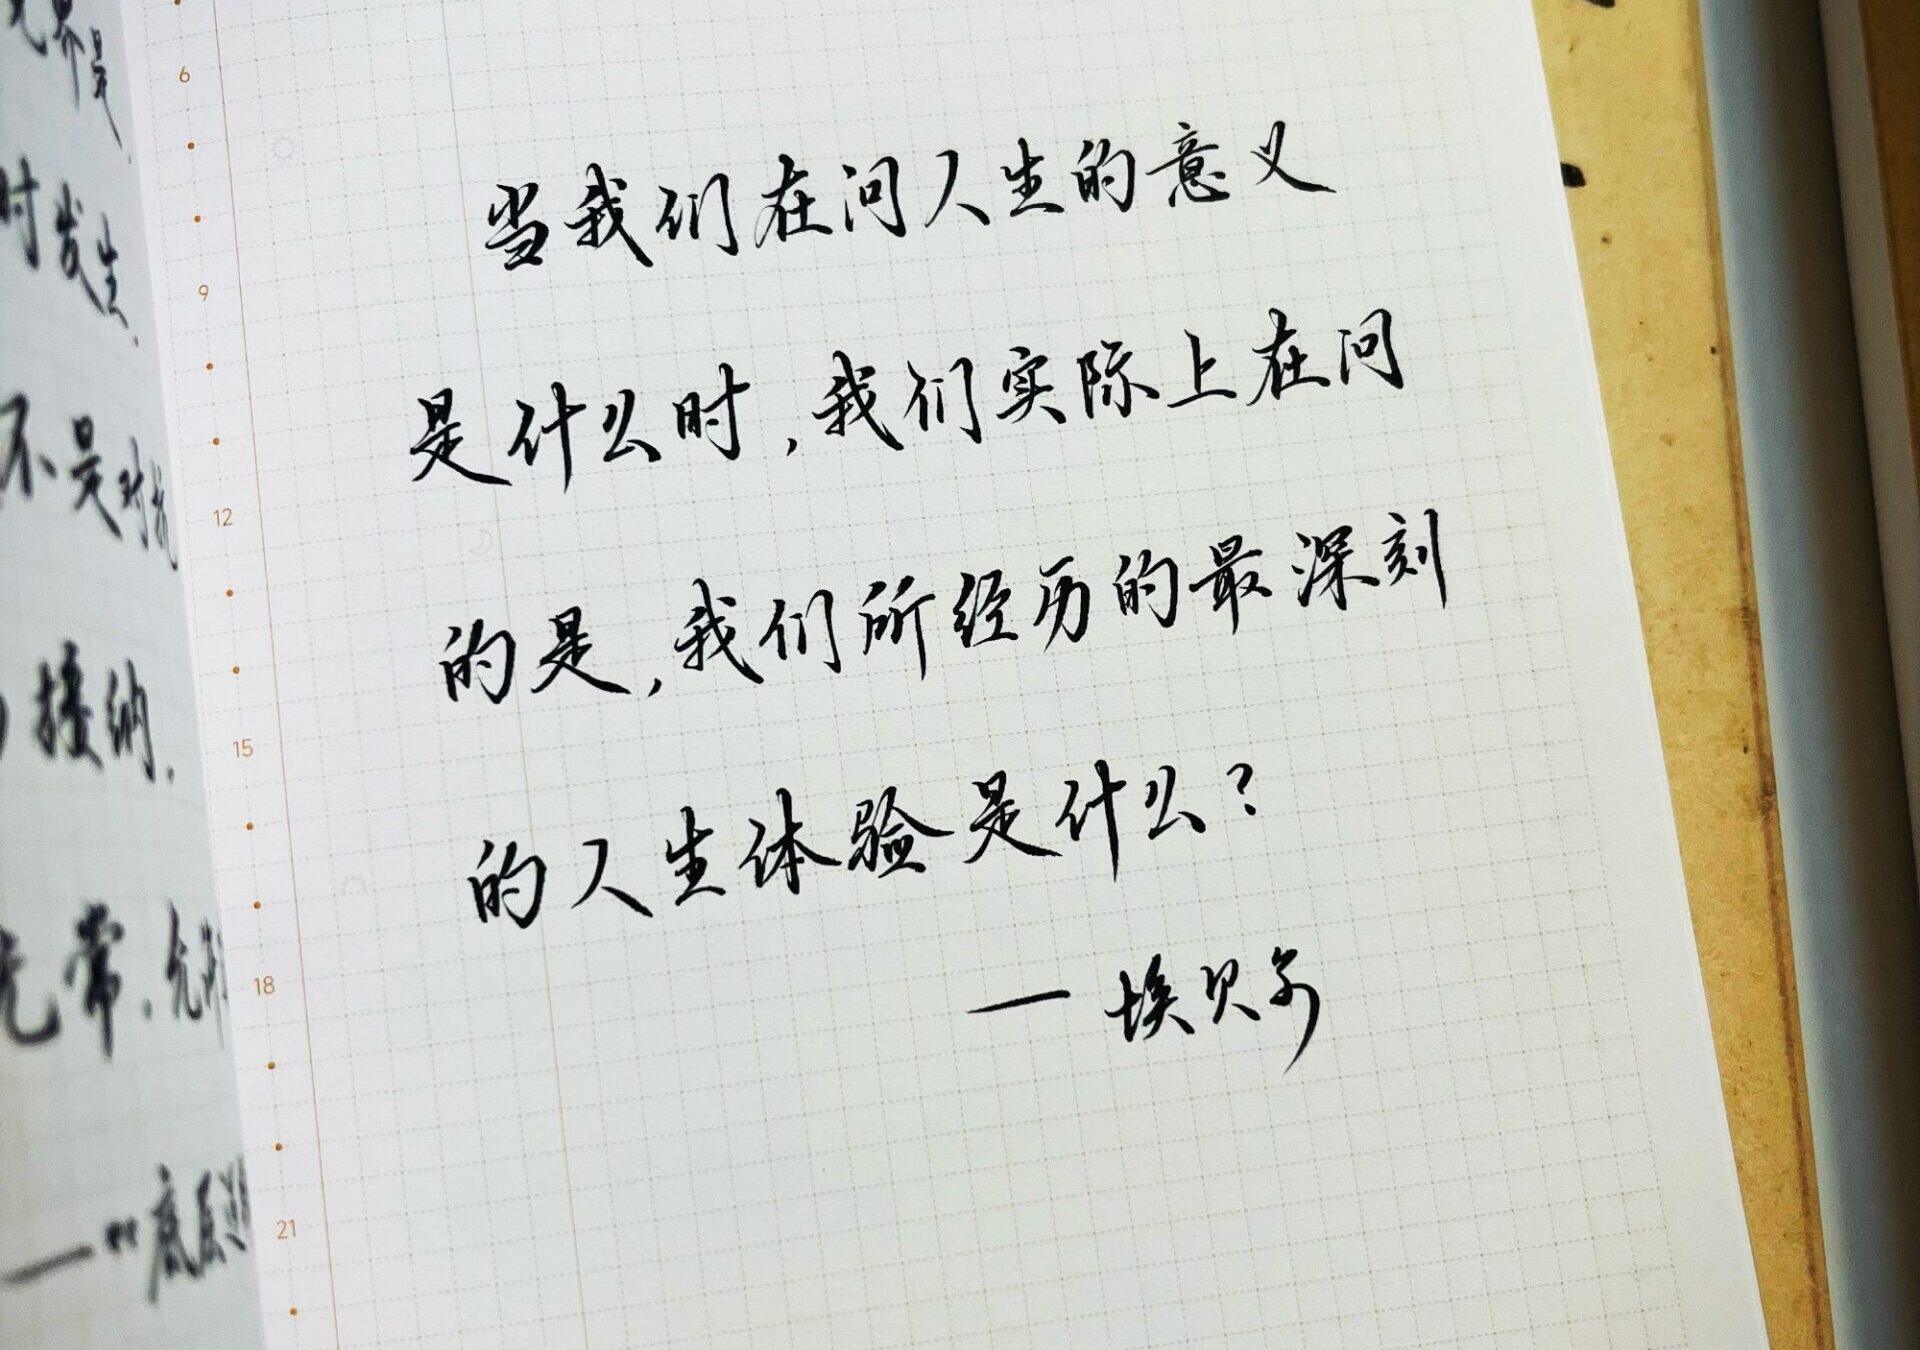 当我们在问人生的意义
是什么时，我们实际上在问
的是，我们所经历的最深刻
的人生体验是什么？
— 埃贝尔
时发生.
不是对抗
接纳.
常.允
—"底层
6
9
12
15
18
21